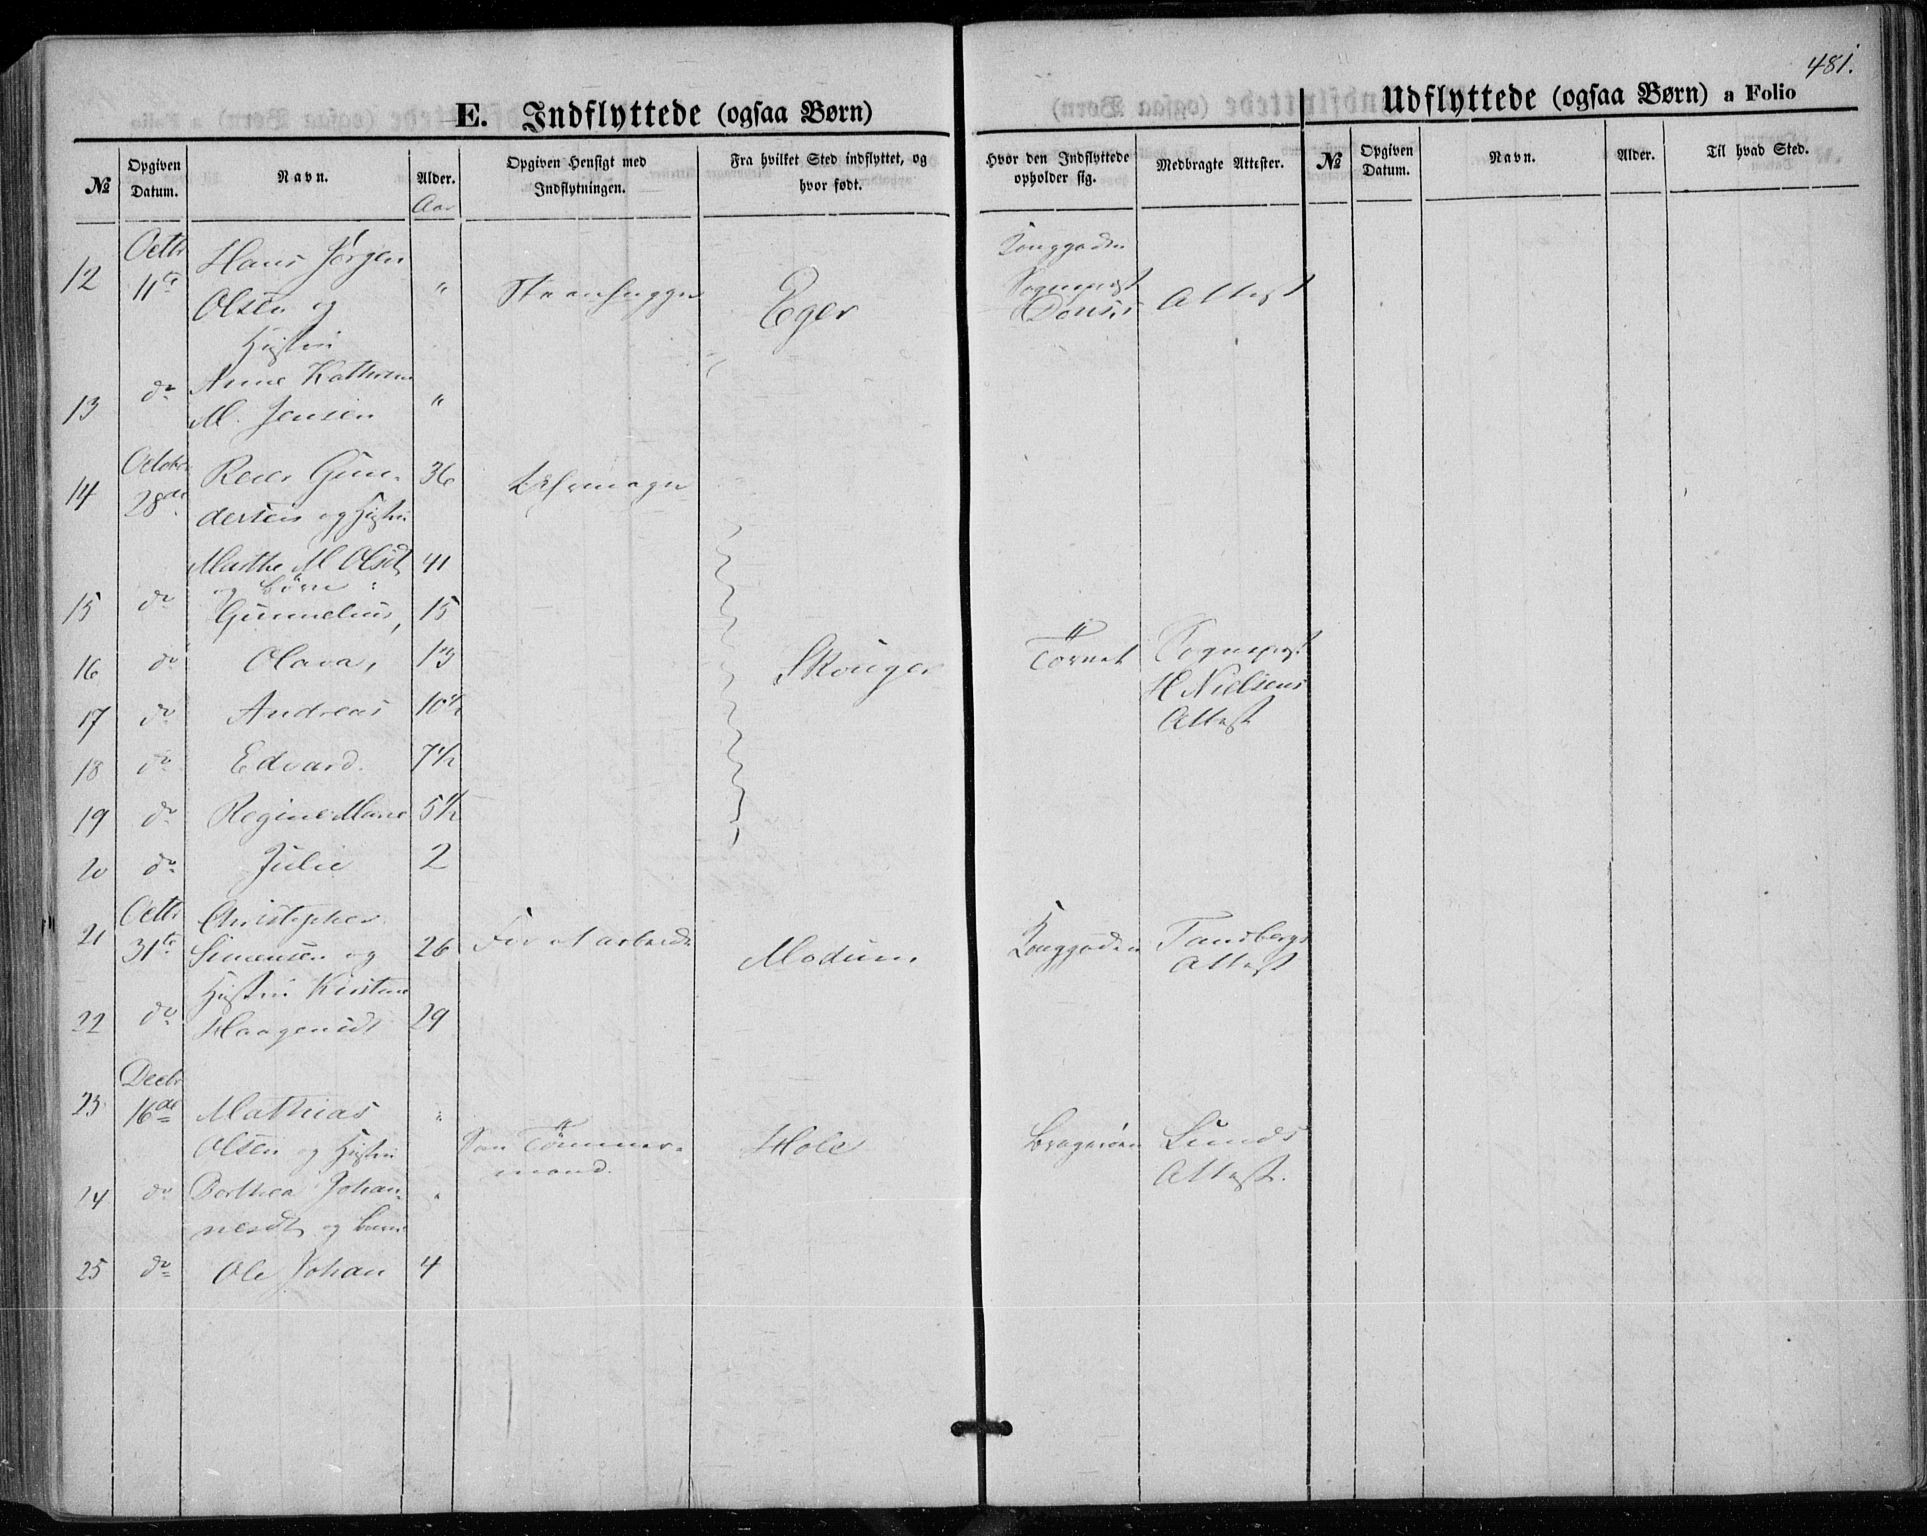 481.
E. Indflyttede (ogsaa Børn)
Udflyttede (ogsaa Børn) a Folio
№
Opgiven Datum.
Navn.
Alder.
Aar
Opgiven Hensigt med Indflytningen.
Fra hvilket Sted indflyttet, og hvor født.
Hvor den Indflyttede opholder sig.
Medbragte Attester.
№
Opgiven Datum.
Navn.
Alder.
Til hvad Sted.
12 Octbr Hans Jörgen Konggaden
11te Olsen og " Steenhugger Eger Attest
Hustru
13 do Anne Kathrine
M. Jensen "
14 October Reer Gun- 36
28de dersen og Hustru
Marthe M Olsdt 41
og Börn:
15 do Gunnelius, 15
16 do Olava, 13 Skouger Törnet Sognepræst
H Nielsens
17 do Andreas 10½ Attest
18 do Edvard. 7½
19 do Regine Marie 5½
20 do Julie 2
21 Octbr Christopher
31te Simensen og 26 For at arbeide Modum Konggaden Tandbergs
Attest
Hustru Kirstine
22 do Haagensdt 29
23 Decbr
16de Mathias "
Olsen og Hustru Som Tömmer- Hole Bragernæs Lunds
mand. Attest.
24 do Dorthea Johan- "
nesdt og Barn
25 do Ole Johan 4